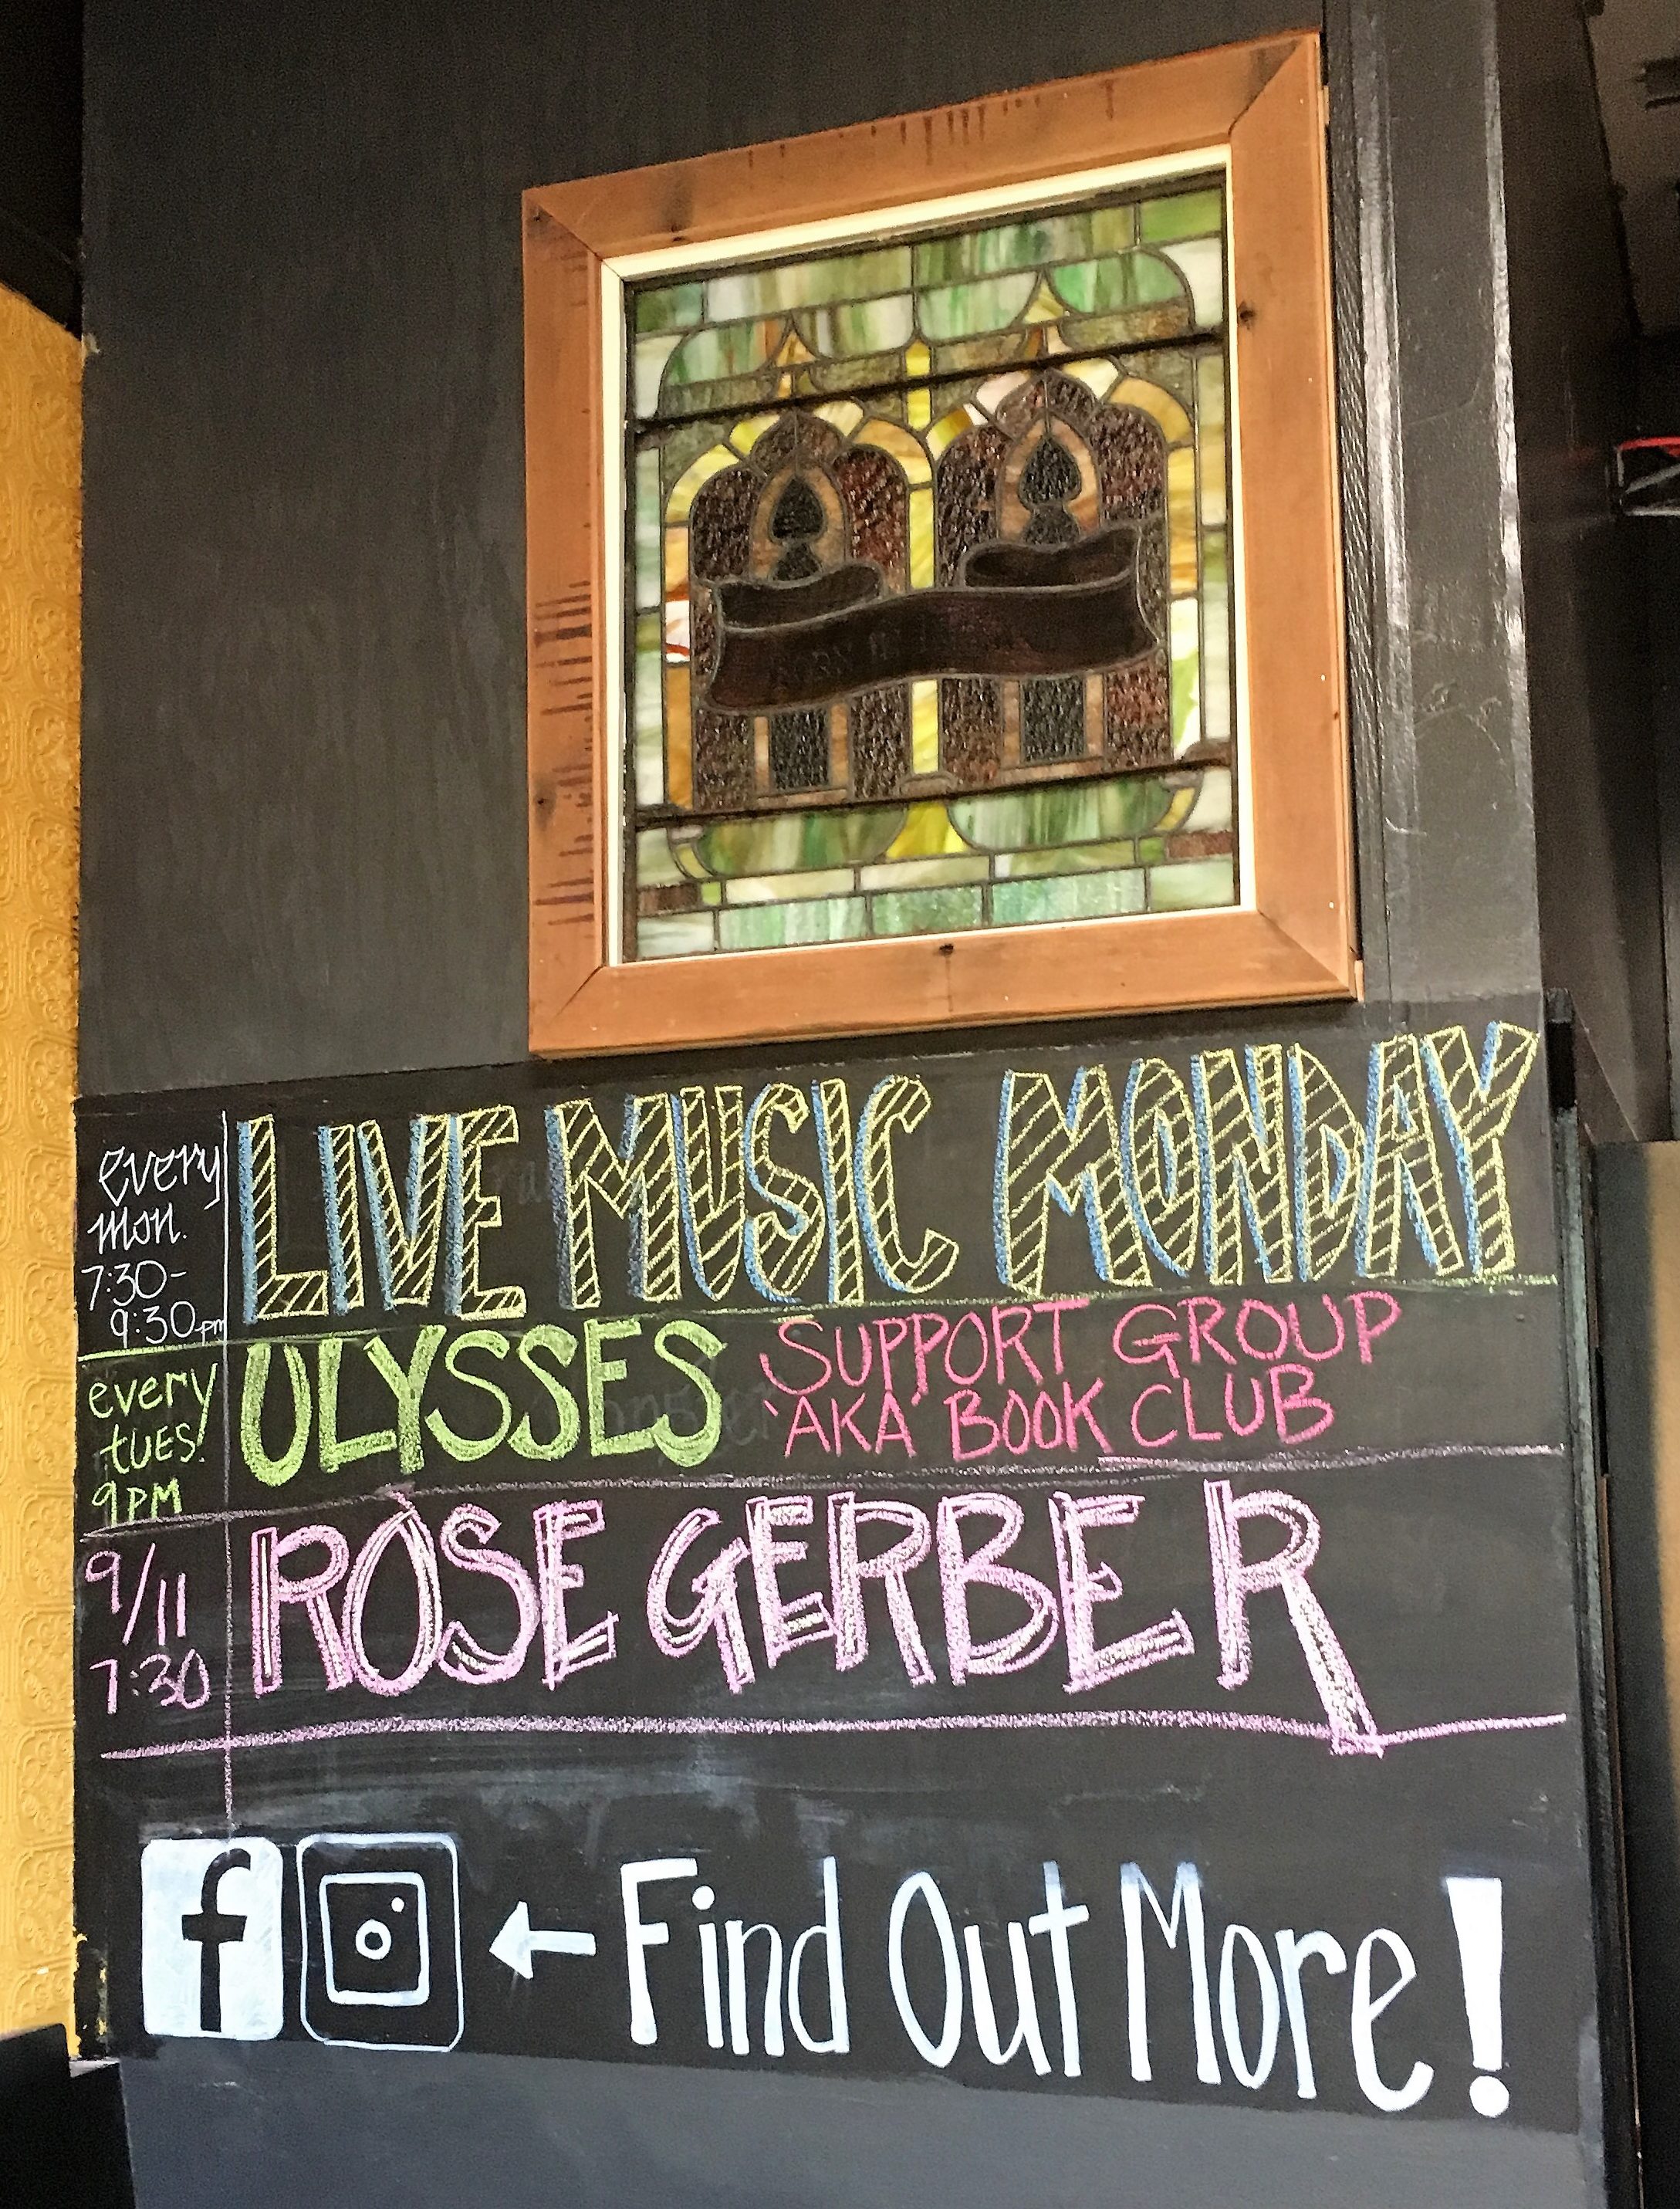 every
mon.
7:30-
9:30pm
LIVE MUSIC MONDAY
every
tues!
9PM
ULYSSES
SUPPORT GROUP
'AKA' BOOK CLUB
9/11
7:30
ROSE GERBER
f
← Find Out More!